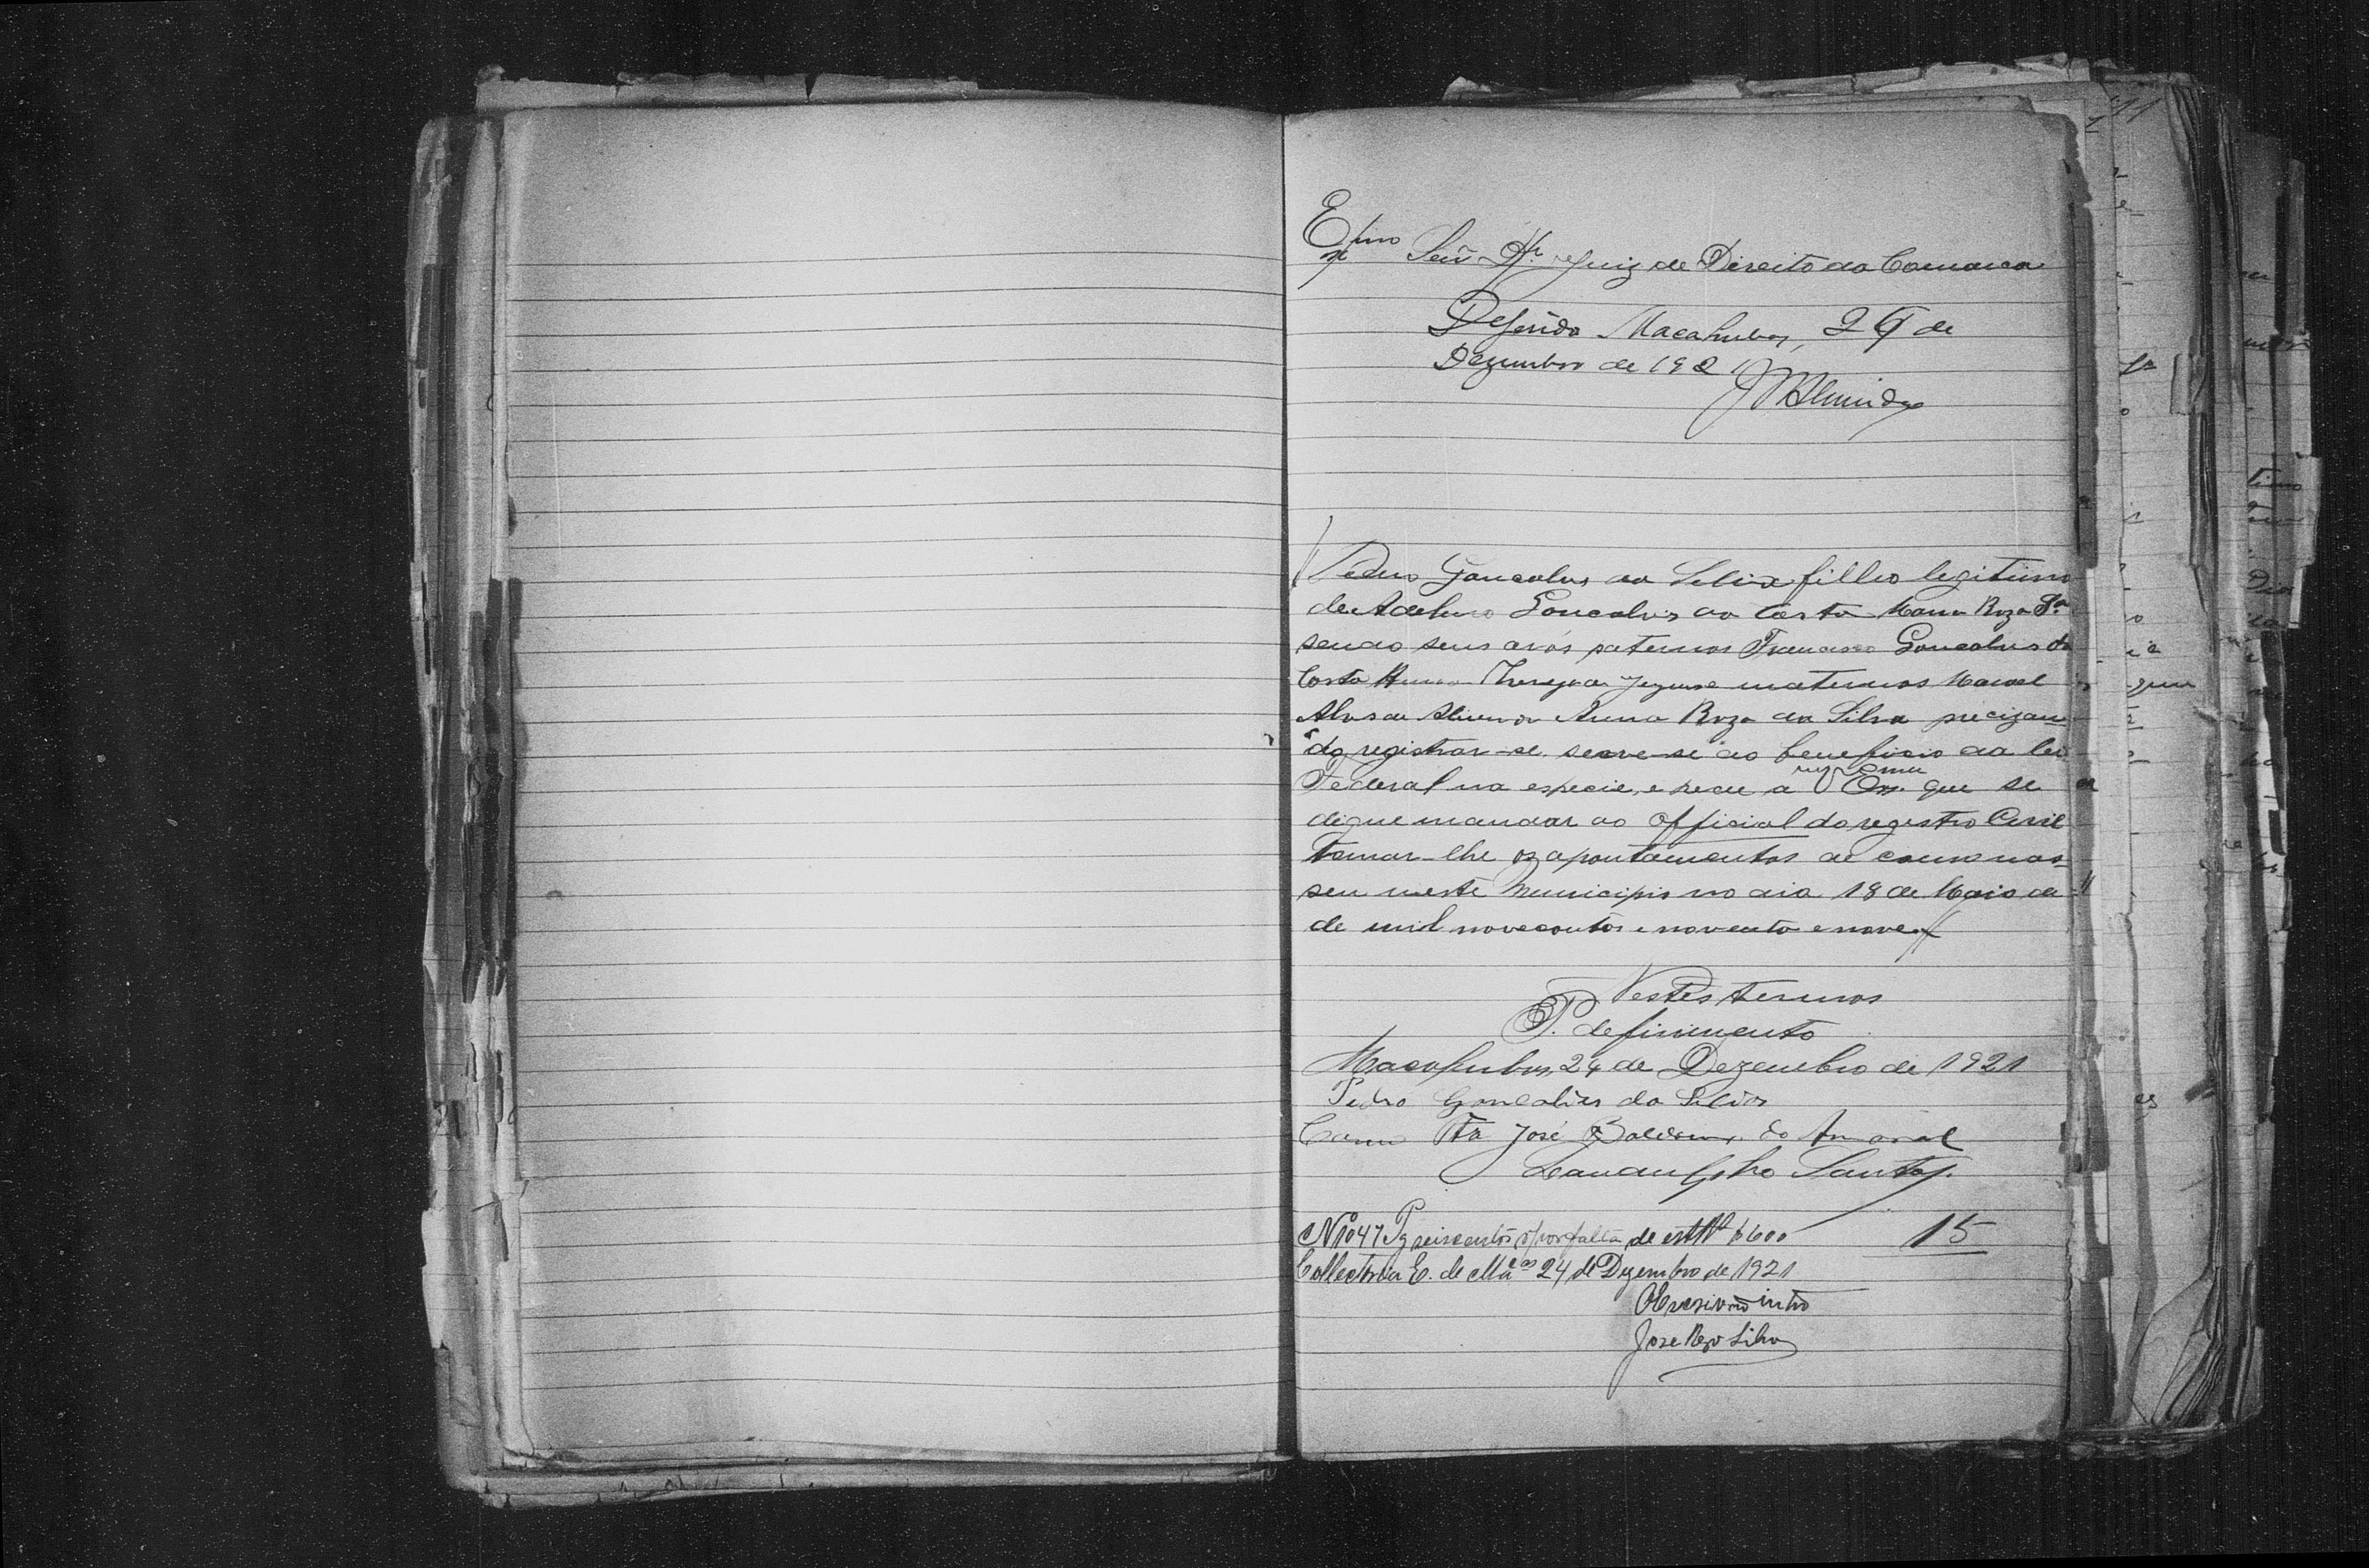 Exmo Señ Dr. Juiz de Direito da Comarca
Deferido Macahubas, 24 de
Dezembro de 1921
JMAlmida
Pedro Goncalves da Silva filho legitimo
de Adelino Goncalves da Costa Maria Roza Sa
sendo seus avós paternos Francisco Goncalves da
Costa Thereza de Jezus e maternos Manoel
Alves de Anna Roza da Silva precizan
do registrar-se, serve-se ao beneficio da lei
Federal na especie, e pede a V Exa. que se
digne mandar ao official do registro Civil
tomar-lhe os apontamentos de como nas
seu neste Municipio no dia 18 de Maio de
de mil novecentos e noventa e nove
Nestes termos
P. deferimento
Macahubas, 24 de Dezembro de 1921
Pedro Goncalves da Silva
Como Ta José do Amaral
Santos
15
No 1047 Pg seiscentos rs por falta de estpa $600
Collectoria E. de Macas 24 de Dezembro de 1921
O Escrivão intro
Jose Rego Silva